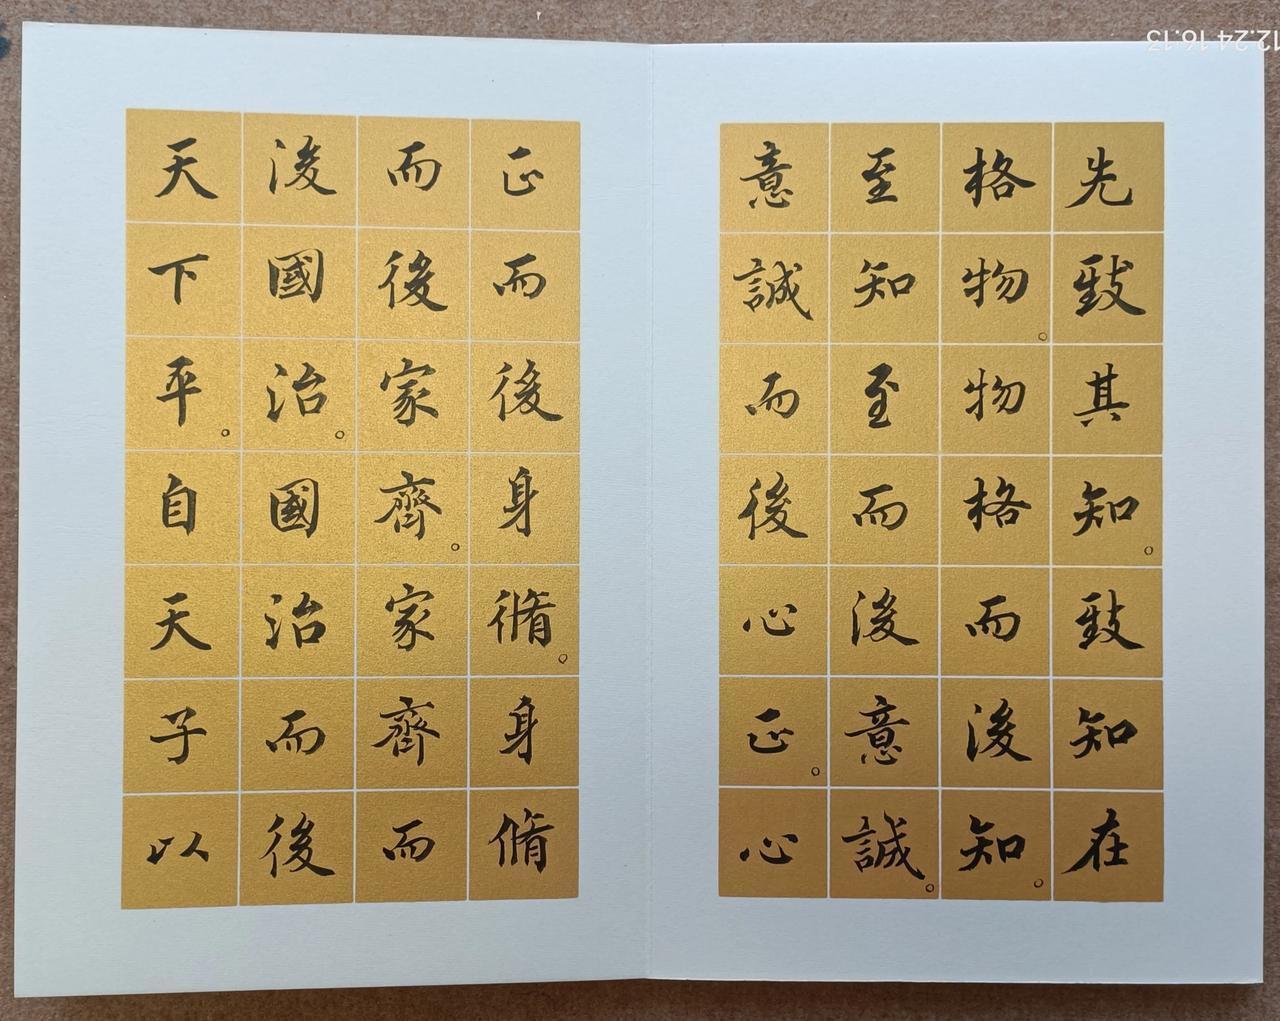 先致其知。致知在
格物。物格而後知。
至知至而後意誠。
意誠而後心正。心
正而後身脩。身脩
而後家齊。家齊而
後國治。國治而後
天下平。自天子以
12.24 16:13